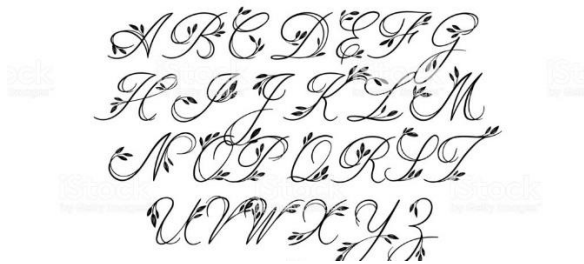 A B C D E F G
H I J K L M
N O P Q R S T
U V W X Y Z
iStock
by Getty Images™